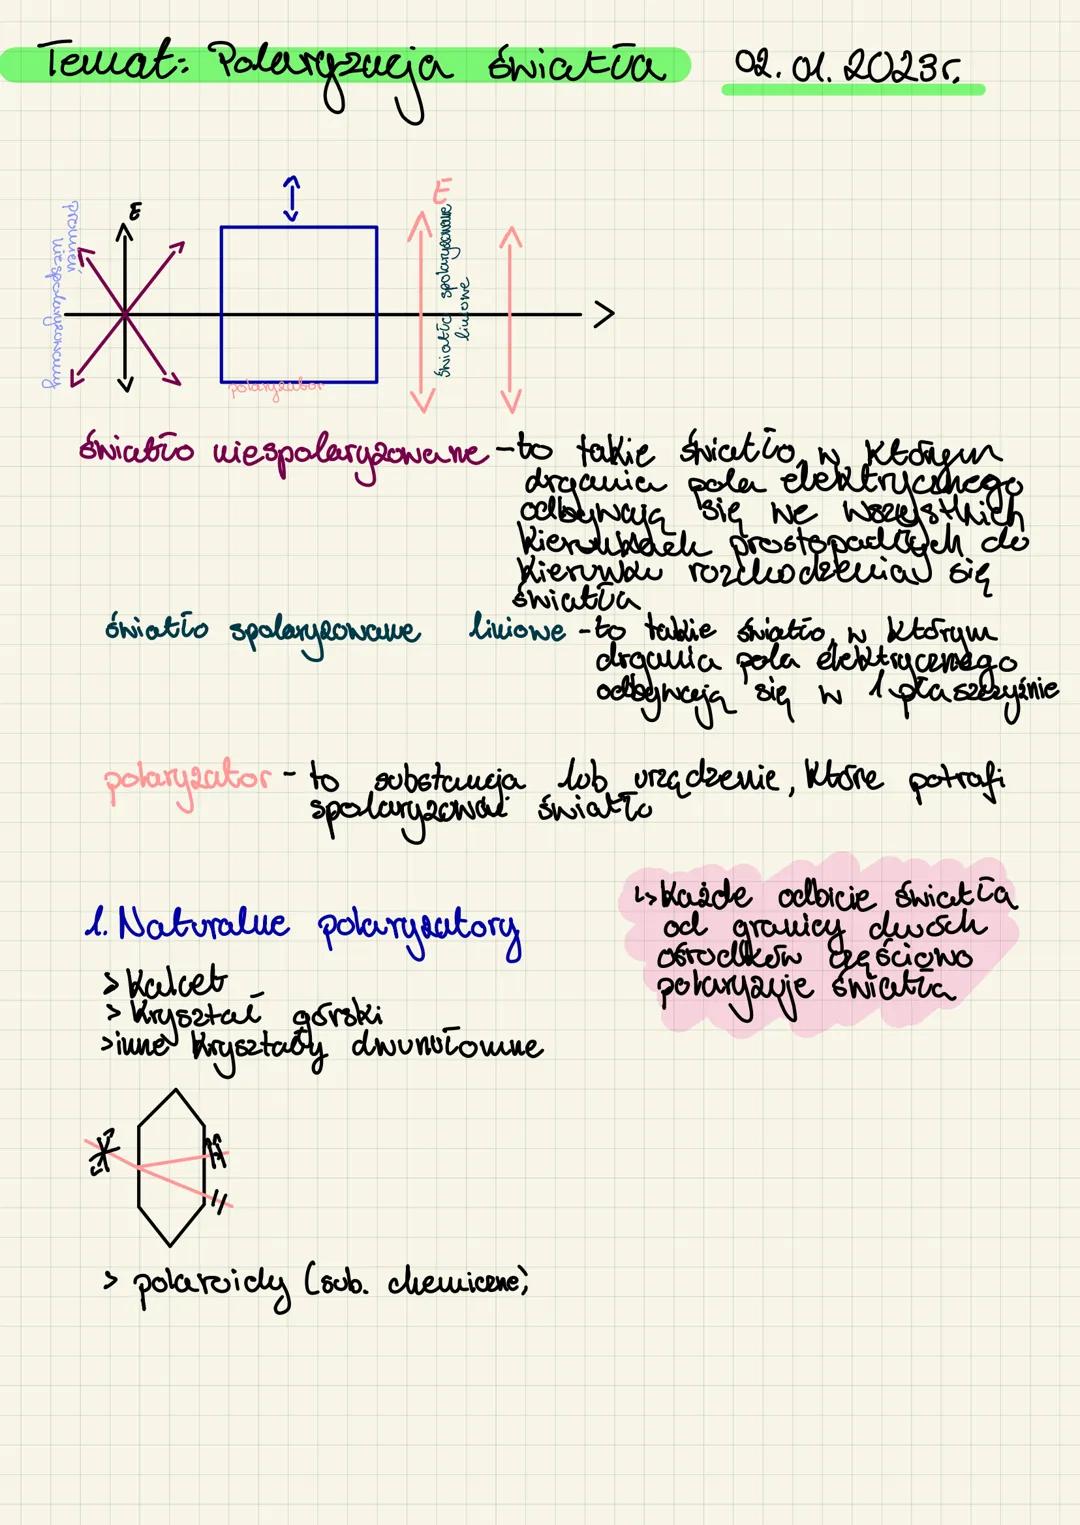 Temat: Polaryzacja światła 02.01.2023r.
promień
niespolaryzowany
E
polaryzator
E
światło spolaryzowane
liniowe
światło niespolaryzowane - to takie światło, w którym
drgania pola elektrycznego
odbywają się we wszystkich
kierunkach prostopadłych do
kierunku rozchodzenia się
światła
światło spolaryzowane liniowe - to takie światło, w którym
drgania pola elektrycznego
odbywają się w 1 płaszczyźnie
polaryzator - to substancja lub urządzenie, które potrafi
spolaryzować światło
↳ Każde odbicie światła
od granicy dwóch
ośrodków częściowo
polaryzuje światła
1. Naturalne polaryzatory
> Kalcet
> Kryształ górski
> inne Kryształy dwunułomne
> polaroidy (sub. chemiczne)